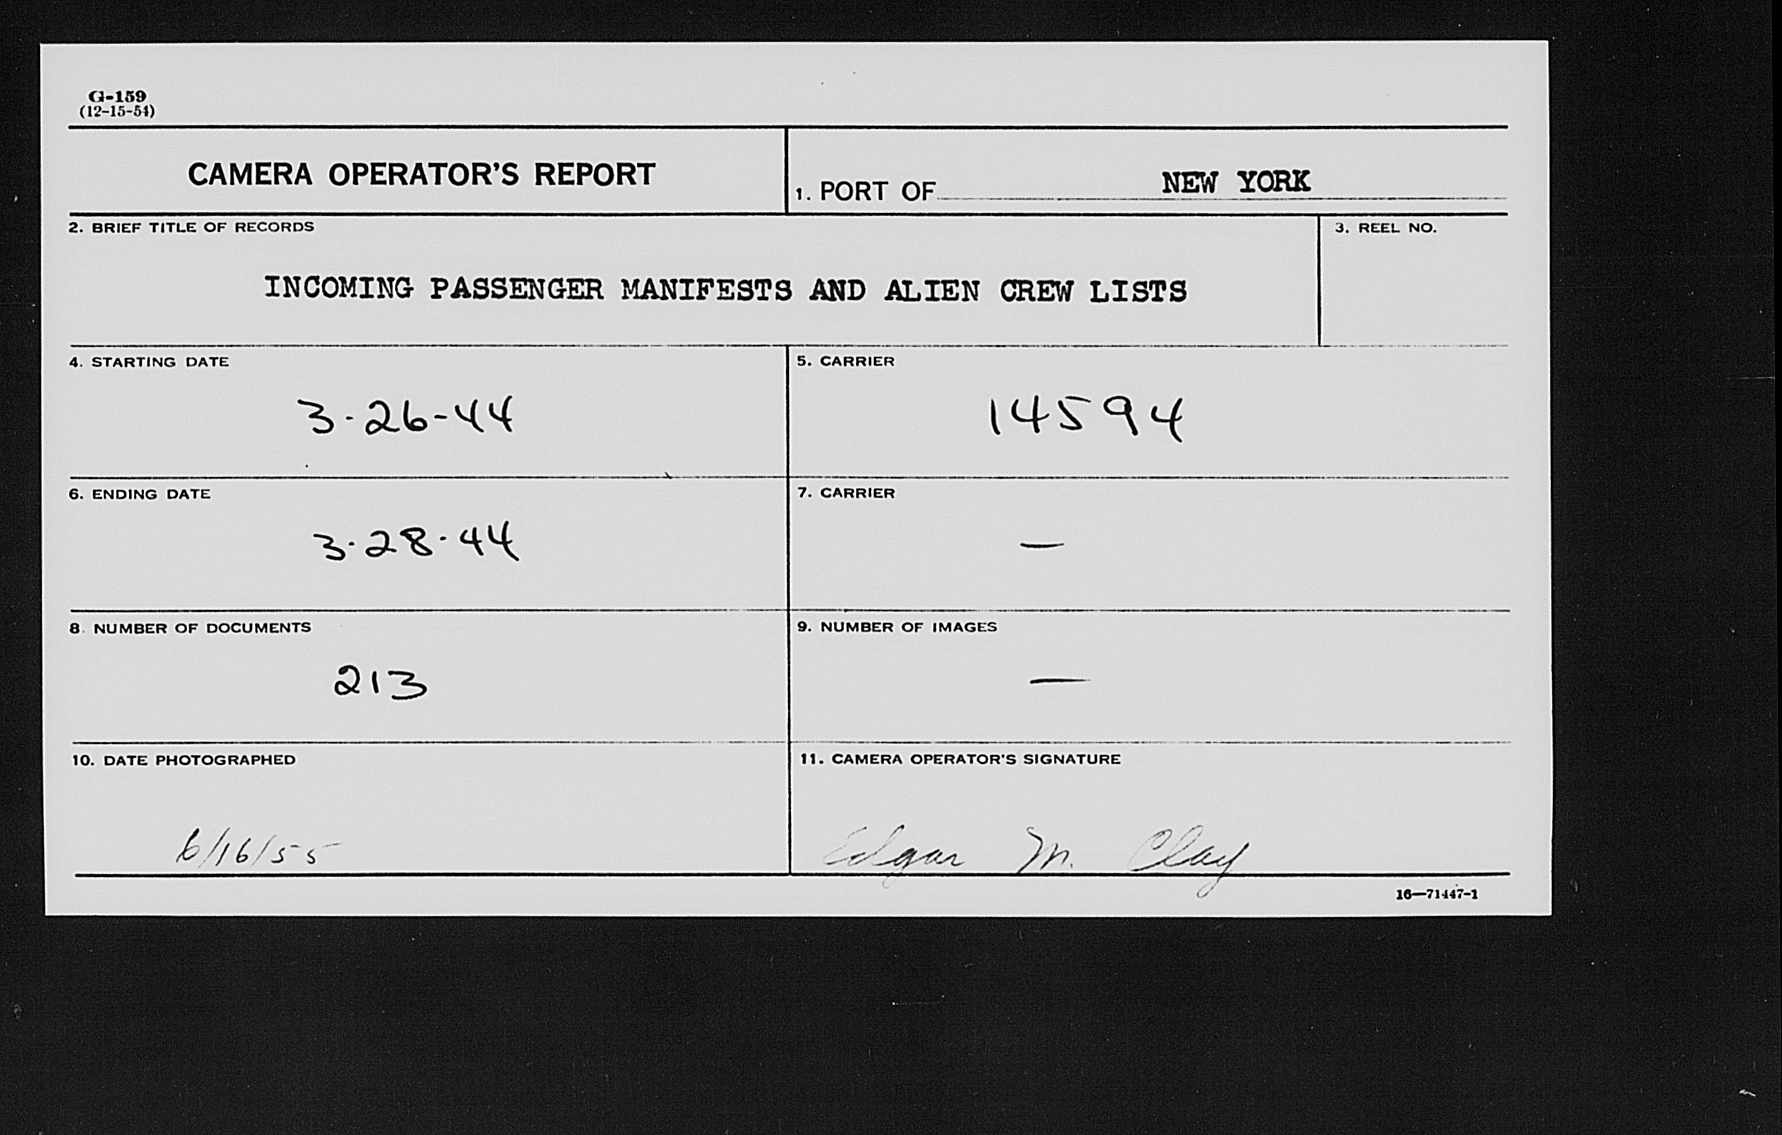 G-159
(12-15-54)
CAMERA OPERATOR'S REPORT
1. PORT OF NEW YORK
2. BRIEF TITLE OF RECORDS
INCOMING PASSENGER MANIFESTS AND ALIEN CREW LISTS
3. REEL NO.
4. STARTING DATE
3-26-44
5. CARRIER
14594
6. ENDING DATE
3-28-44
7. CARRIER
—
8. NUMBER OF DOCUMENTS
213
9. NUMBER OF IMAGES
—
10. DATE PHOTOGRAPHED
6/16/55
11. CAMERA OPERATOR'S SIGNATURE
Edgar M. Clay
16—71447-1